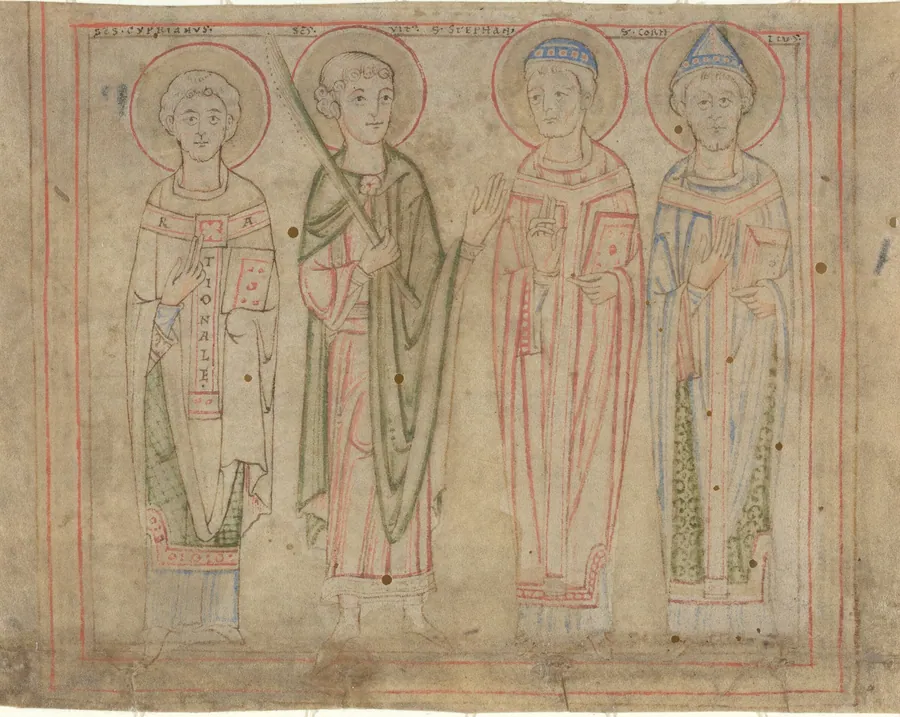 SCS. CYPRIANUS. SCS. VIT. S. STEPHAN S. CORN LIUS.
R A
TIONALE.